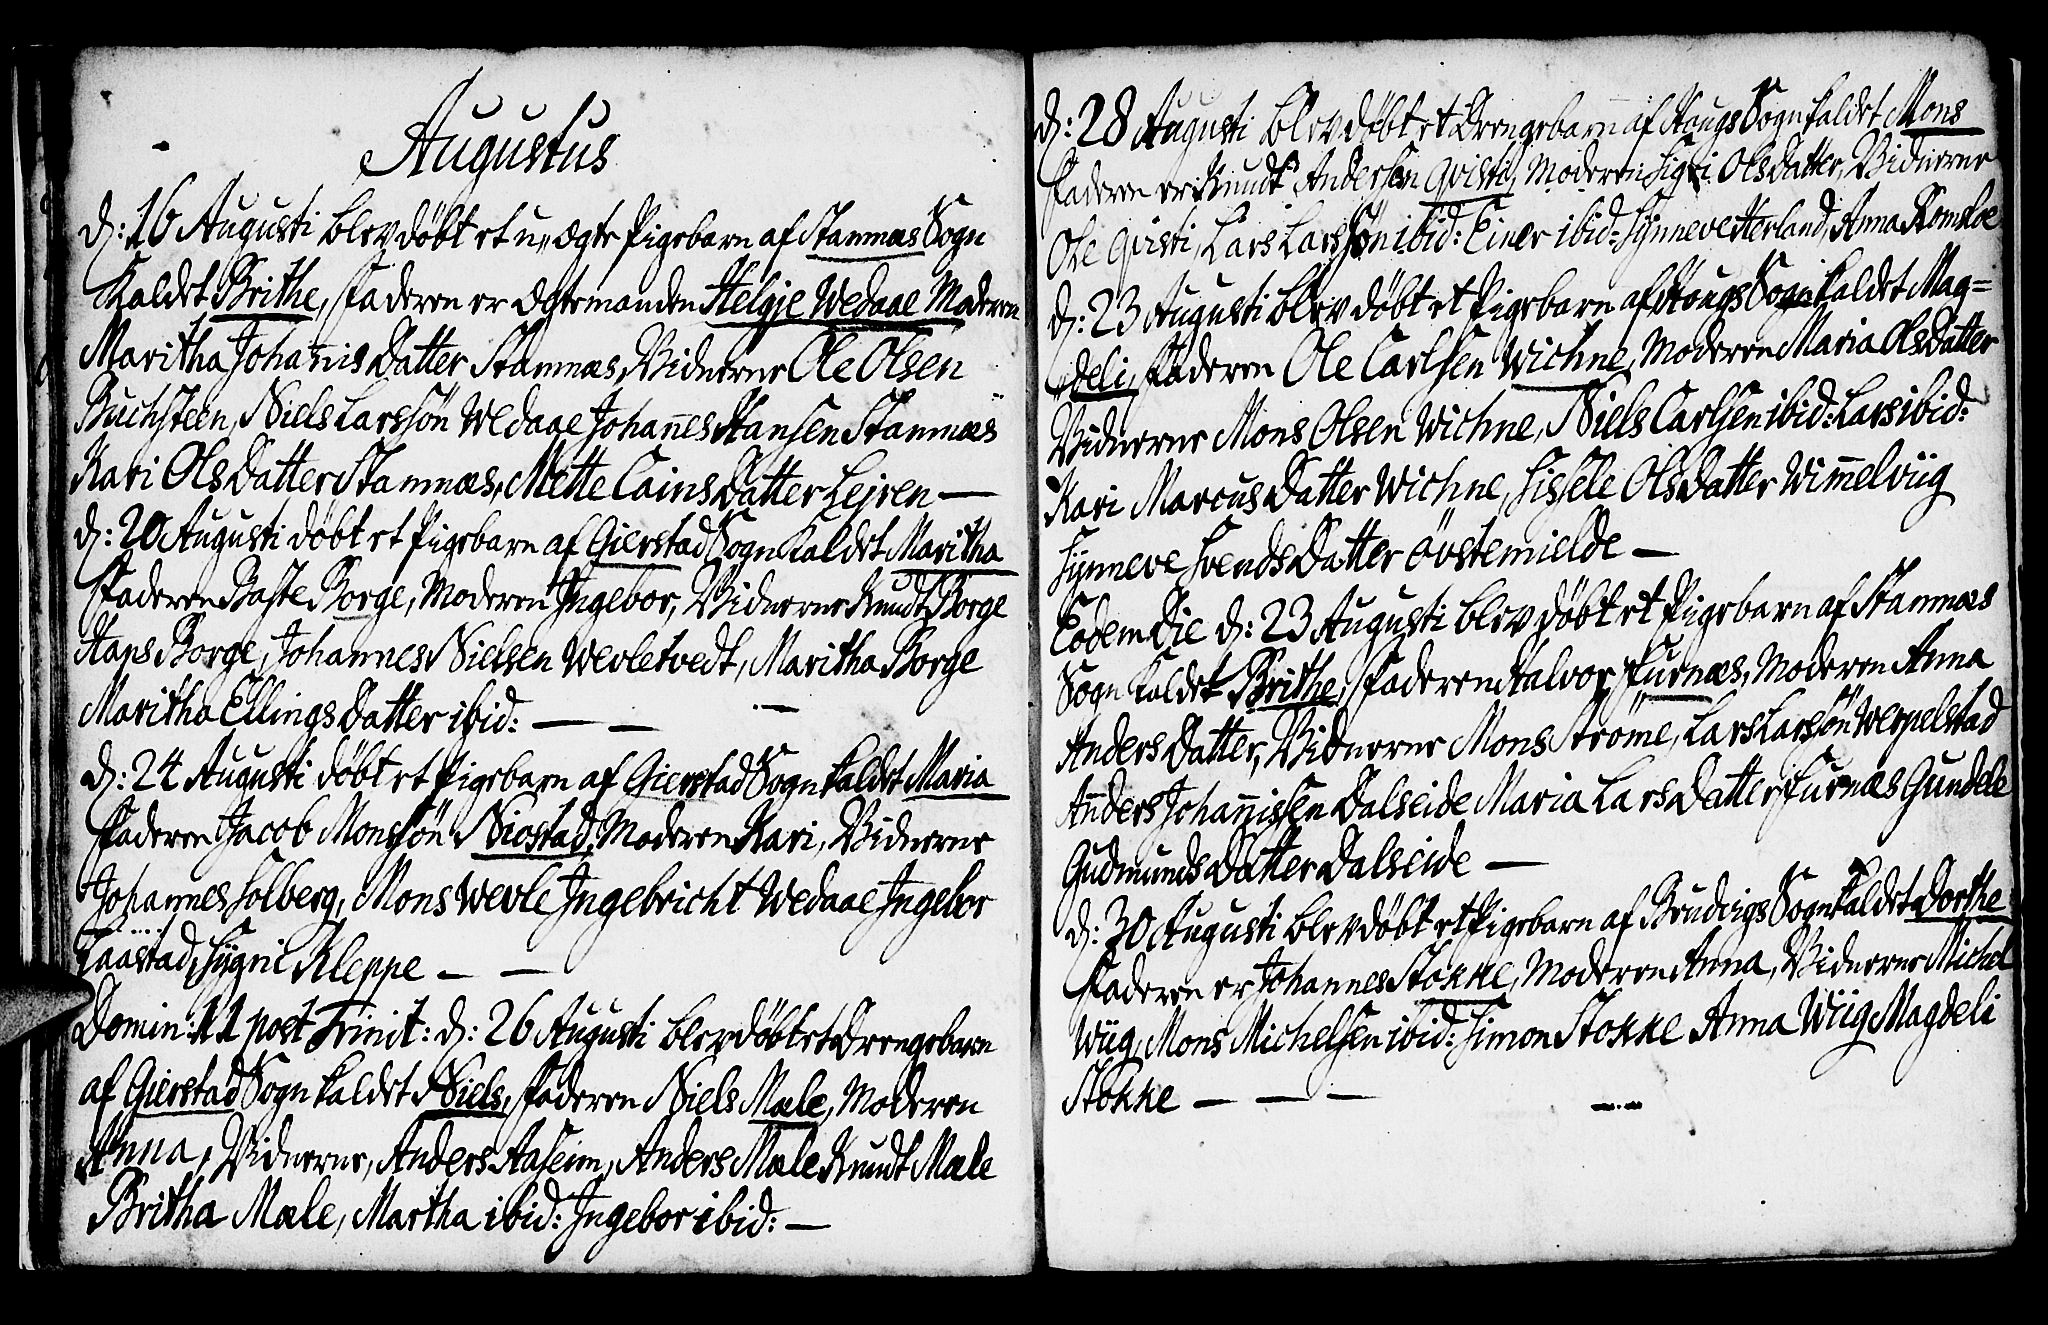 Augustus
d: 16 Augusti blev døbt et u,, ægte Pigebarn af Stamnæs Sogn
Kaldet Brithe, Faderen er Ægtemanden Helgje Wedaae Moderen
Maritha Johannis Datter Stamnæs, Vidnerne Ole Olsen
Buchsteen, Niels Larssøn Wedaae Johannes Hansen Stamnæs
Kari Ols Datter Stamnæs, Mette Cains Datter Lejren —
d: 20 Augusti døbt et Pigebarn af Gierstad Sogn Kaldet Maritha
Faderen Baste Borge, Moderen Ingebor, Vidnerne Knudt Borge
Hans Borge, Johannes Nielsen Wevletvedt, Maritha Borge
Maritha Ellings Datter ibid: — — —
d: 24 Augusti døbt et Pigebarn af Gierstad Sogn kaldet Maria
Faderen Jacob Monssøn Niostad, Moderen Kari, Vidnerne
Johannes Solberg, Mons Wevle Ingebricht Wedaae Ingebor
Taastad, Sygni Kleppe — —
Domin: 11 post Trinit: d: 26 Augusti blev døbt et Drengebarn
af Gierstad Sogn kaldet Niels, Faderen Niels Mæle, Moderen
Anna, Vidnerne, Anders Aaseim, Anders Mæle Knudt Mæle
Britha Mæle, Martha ibid: Ingebor ibid: —
d: 28 Augusti blev døbt et Drengebarn af Hougs Sogn kaldet Mons
Faderen er Knudt Andersen Qvisti, Moderen Sigri Ols Datter, Vidnerne
Ole Qvisti, Lars Larssøn ibid: Einer ibid: Synneve Herland, Anna Romsloe
d: 23 Augusti blev døbt et Pigebarn af Hougs Sogn kaldet Mag=
deli, Faderen Ole Carlsen Wichne, Moderen Maria Olsdatter
Vidnerne Mons Olsen Wichne, Niels Carlsen ibid: Lars ibid:
Kari Marcus Datter Wichne, Sissele Ols Datter Wimmelviig
Synneve Svends Datter Øvstemielde —
Eodem Die d: 23 Augusti blev døbt et Pigebarn af Stamnæs
Sogn kaldet Brithe, Faderen Halvor Furnæs, Moderen Anna
Anders Datter, Vidnerne Mons Strøme, Lars Larssøn Werpelstad
Anders Johannissen Dalseide Maria Lars Datter Furnæs Gundele
Gudmunds Datter Dalseide —
d: 30 Augusti blev døbt et Pigebarn af Brudvigs Sogn kaldet Dorthe
Faderen er Johannes Stokke, Moderen Anna, Vidnerne Michel
Wiig, Mons Michelsen ibid: Simon Stokke Anna Wiig Magdeli
Stokke — — —